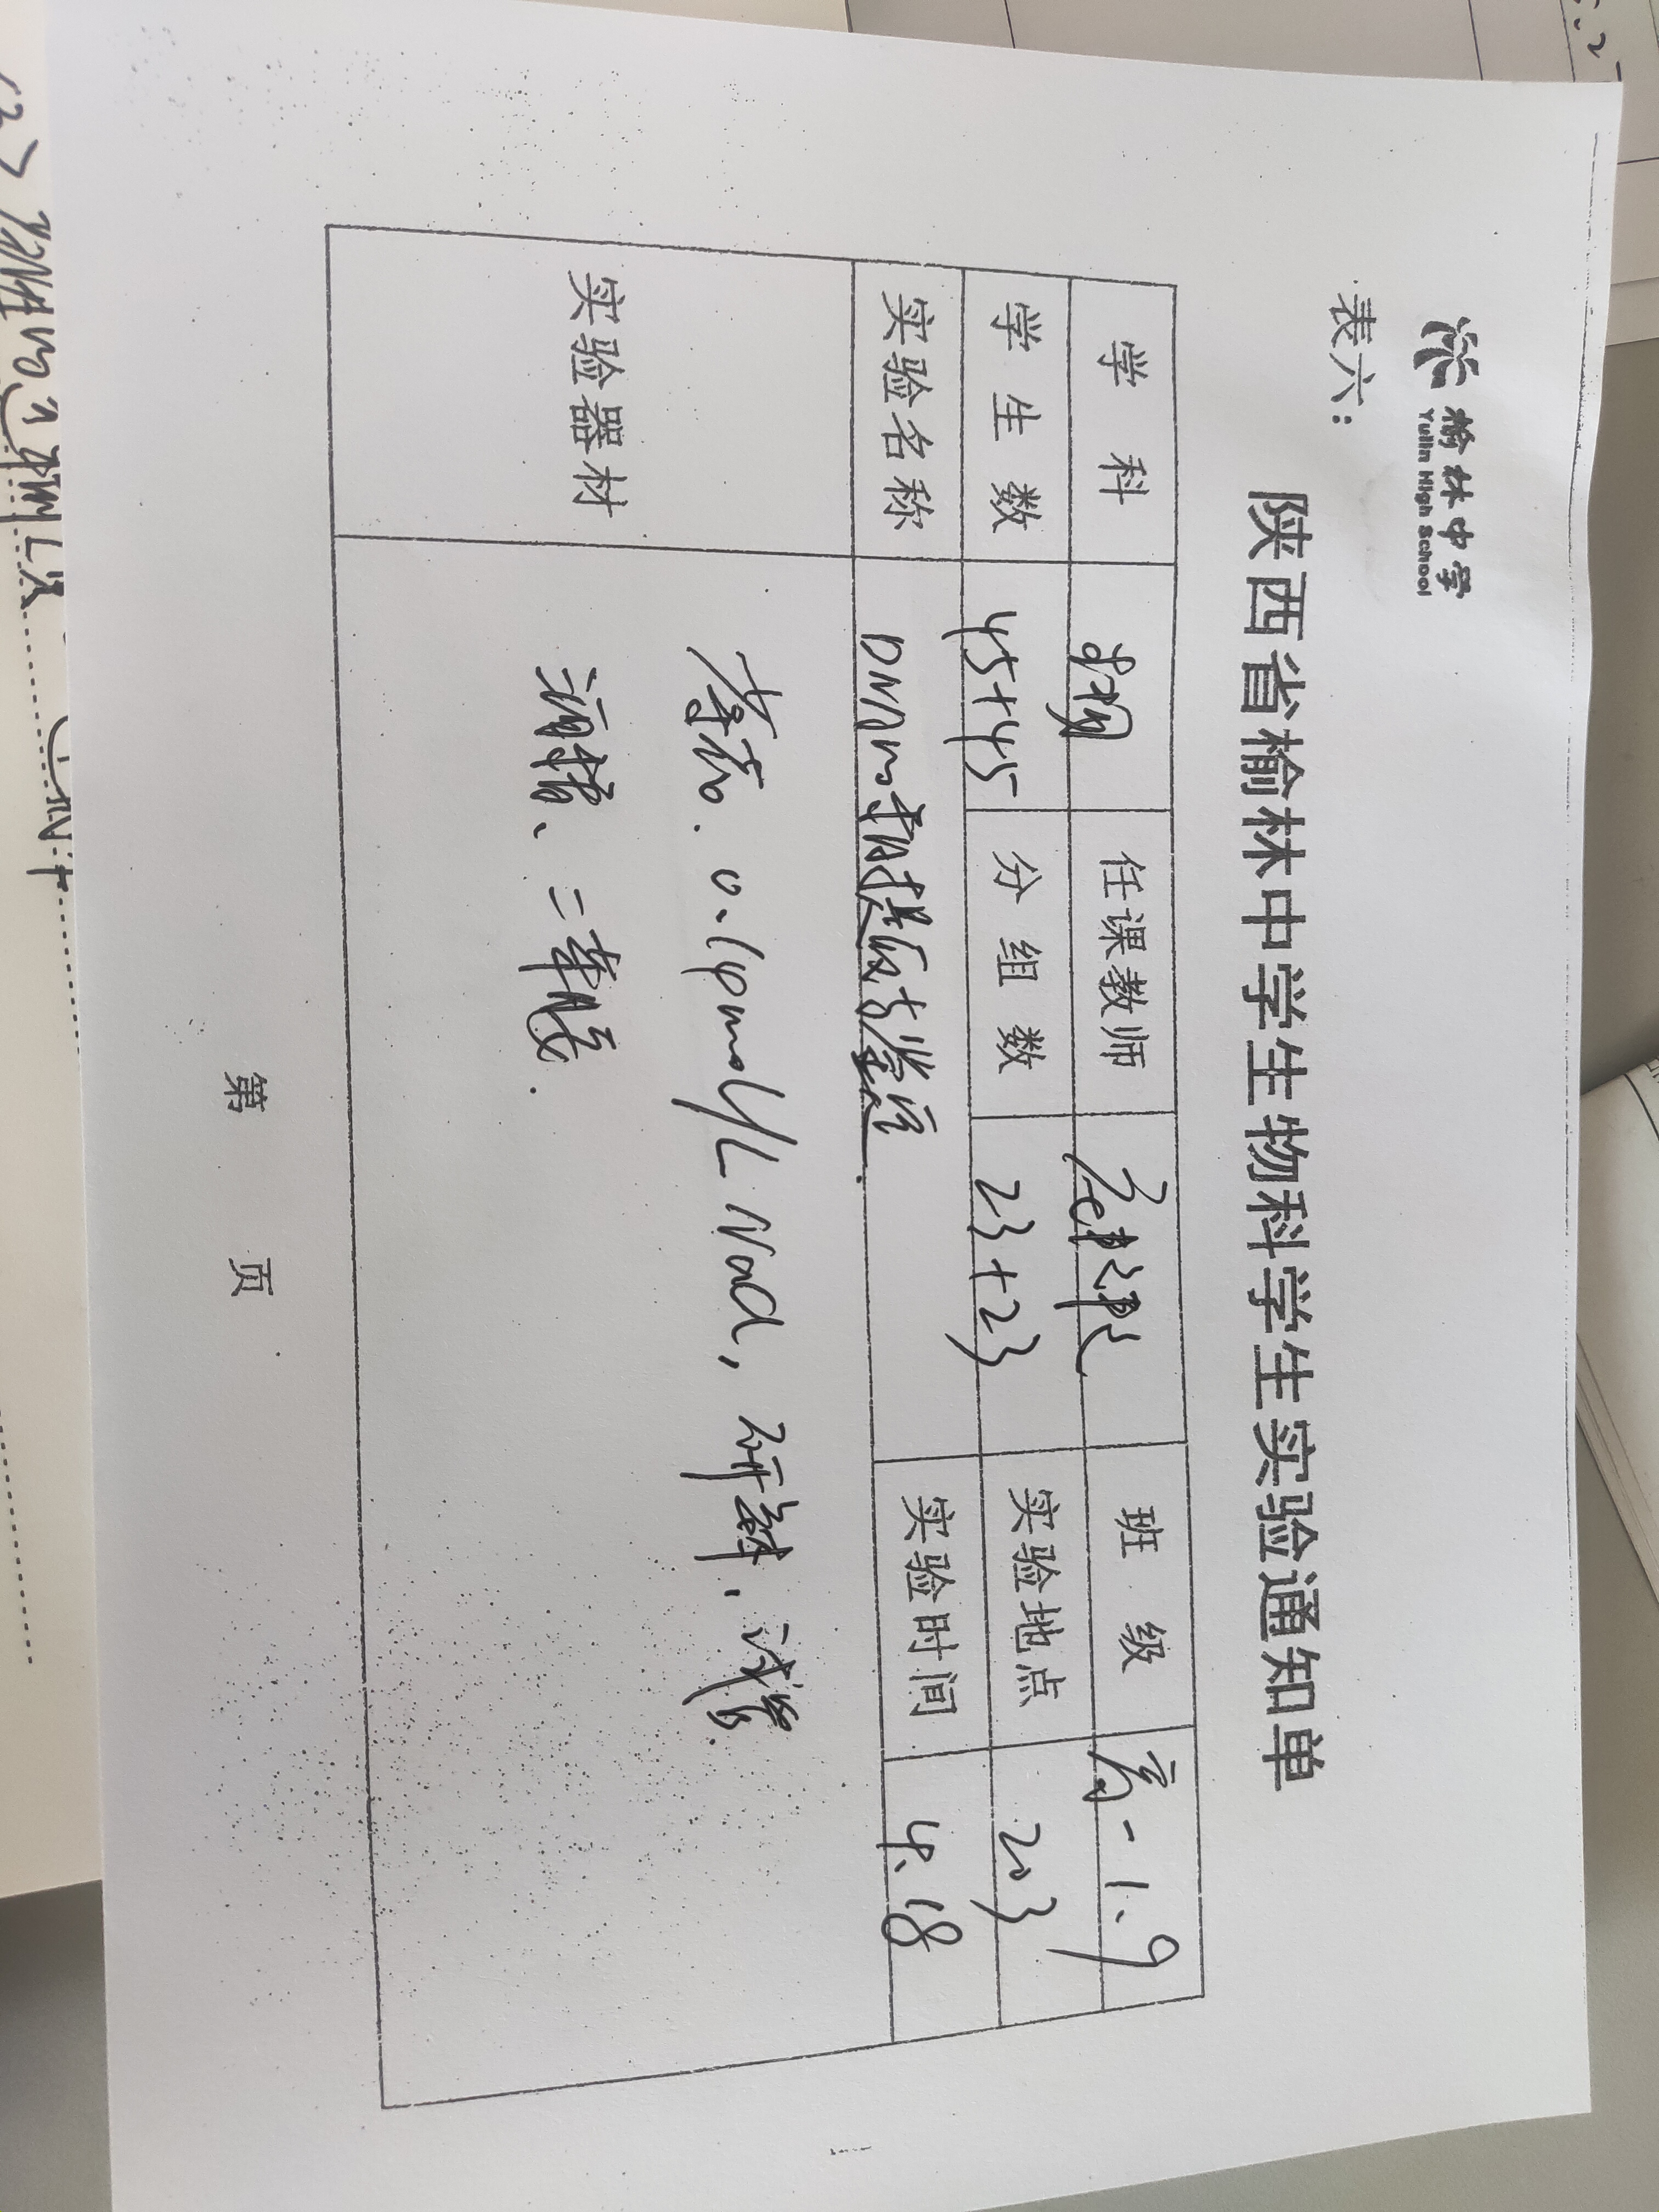 榆林中学
Yulin High School
表六：
陕西省榆林中学学生生物科学生实验通知单
学 科 生物 任课教师 班 级 高一 1.9
学 生 数 45+45 分 组 数 23+23 实验地点 203
实验名称 DNA的粗提取与鉴定. 实验时间 4.18
实验器材
香蕉. 0.14mol/L NaCl, 研钵、试管.
酒精、二苯胺.
第 页